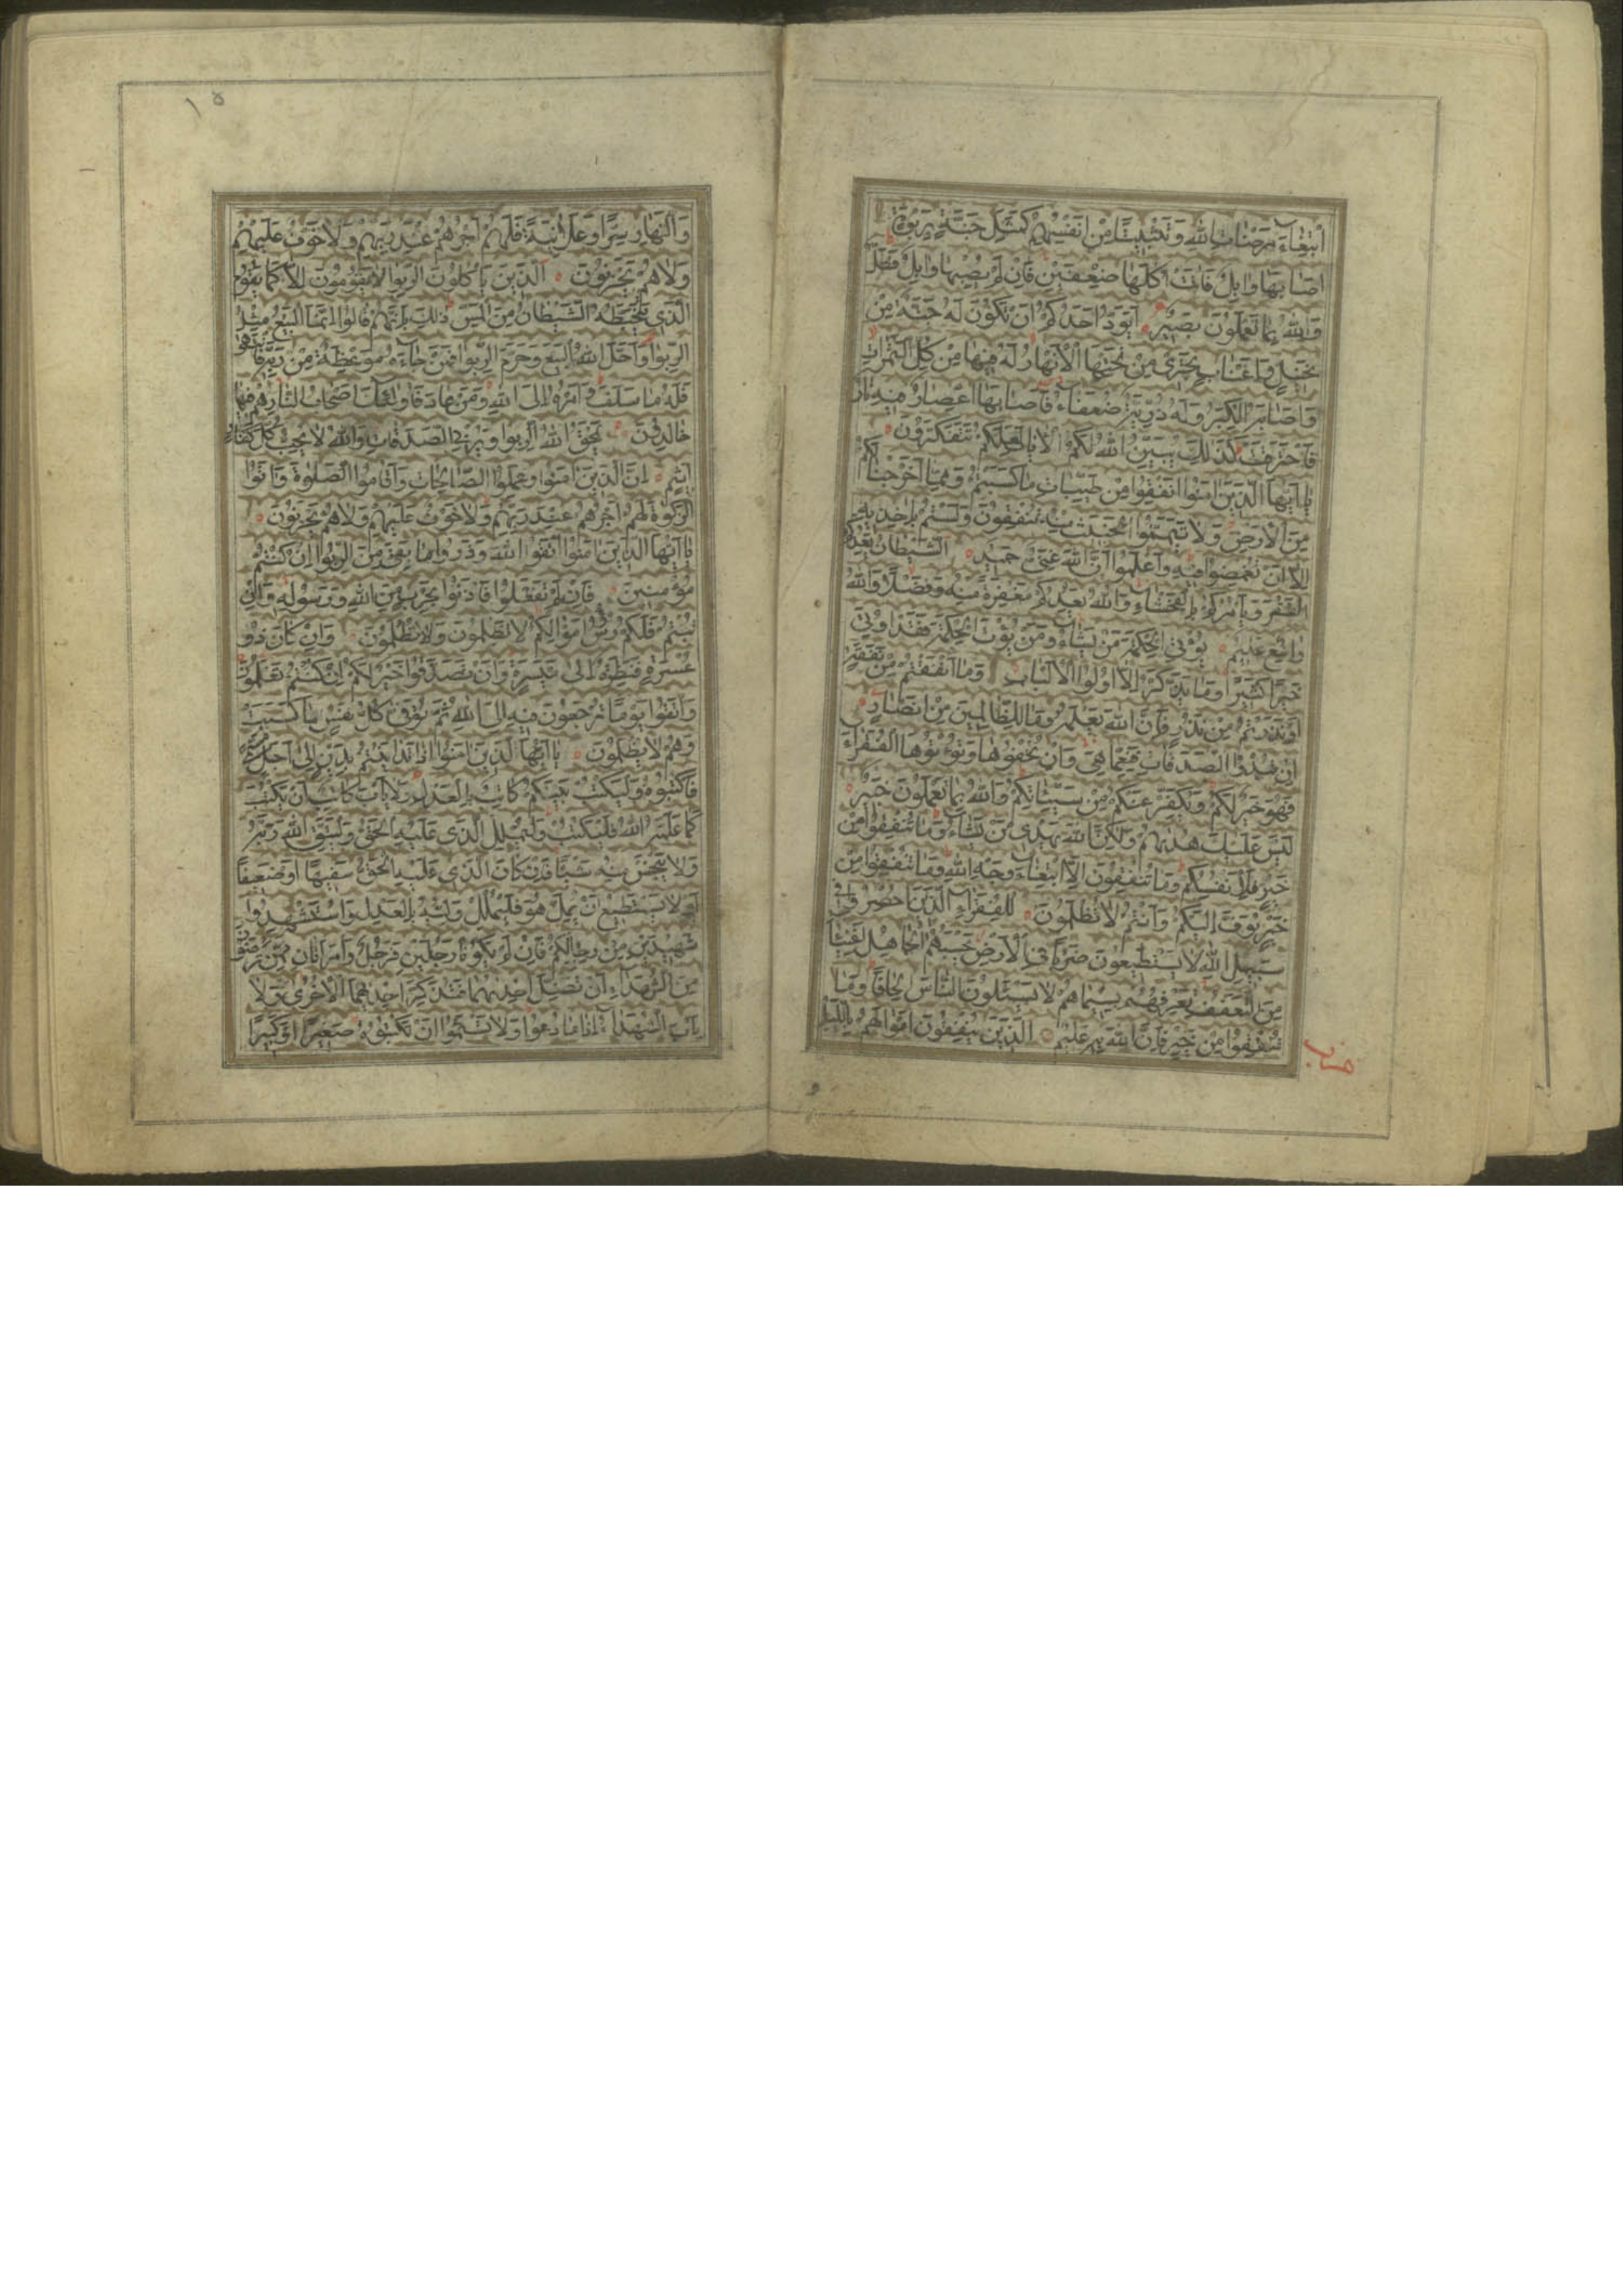 ابْتِغَاءَ مَرْضَاتِ اللهِ وَتَثْبِيتًا مِنْ اَنْفُسِهِمْ كَمَثَلِ جَنَّةٍ بِرَبْوَةٍ
اَصَابَهَا وَابِلٌ فَاٰتَتْ اُكُلَهَا ضِعْفَيْنِ فَاِنْ لَمْ يُصِبْهَا وَابِلٌ فَطَلٌّ
وَاللهُ بِمَا تَعْمَلُونَ بَصِيرٌ اَيَوَدُّ اَحَدُكُمْ اَنْ تَكُونَ لَهُ جَنَّةٌ مِنْ
نَخِيلٍ وَاَعْنَابٍ تَجْرِي مِنْ تَحْتِهَا الْاَنْهَارُ لَهُ فِيهَا مِنْ كُلِّ الثَّمَرَاتِ
وَاَصَابَهُ الْكِبَرُ وَلَهُ ذُرِّيَّةٌ ضُعَفَاءُ فَاَصَابَهَا اِعْصَارٌ فِيهِ نَارٌ
فَاحْتَرَقَتْ كَذٰلِكَ يُبَيِّنُ اللهُ لَكُمُ الْاٰيَاتِ لَعَلَّكُمْ تَتَفَكَّرُونَ
يَا اَيُّهَا الَّذِينَ اٰمَنُوا اَنْفِقُوا مِنْ طَيِّبَاتِ مَا كَسَبْتُمْ وَمِمَّا اَخْرَجْنَا لَكُمْ
مِنَ الْاَرْضِ وَلَا تَيَمَّمُوا الْخَبِيثَ مِنْهُ تُنْفِقُونَ وَلَسْتُمْ بِاٰخِذِيهِ
اِلَّا اَنْ تُغْمِضُوا فِيهِ وَاعْلَمُوا اَنَّ اللهَ غَنِيٌّ حَمِيدٌ اَلشَّيْطَانُ يَعِدُكُمُ
الْفَقْرَ وَيَأْمُرُكُمْ بِالْفَحْشَاءِ وَاللهُ يَعِدُكُمْ مَغْفِرَةً مِنْهُ وَفَضْلًا وَاللهُ
وَاسِعٌ عَلِيمٌ يُؤْتِي الْحِكْمَةَ مَنْ يَشَاءُ وَمَنْ يُؤْتَ الْحِكْمَةَ فَقَدْ اُوتِيَ
خَيْرًا كَثِيرًا وَمَا يَذَّكَّرُ اِلَّا اُولُوا الْاَلْبَابِ وَمَا اَنْفَقْتُمْ مِنْ نَفَقَةٍ
اَوْ نَذَرْتُمْ مِنْ نَذْرٍ فَاِنَّ اللهَ يَعْلَمُهُ وَمَا لِلظَّالِمِينَ مِنْ اَنْصَارٍ
اِنْ تُبْدُوا الصَّدَقَاتِ فَنِعِمَّا هِيَ وَاِنْ تُخْفُوهَا وَتُؤْتُوهَا الْفُقَرَاءَ
فَهُوَ خَيْرٌ لَكُمْ وَيُكَفِّرُ عَنْكُمْ مِنْ سَيِّئَاتِكُمْ وَاللهُ بِمَا تَعْمَلُونَ خَبِيرٌ
لَيْسَ عَلَيْكَ هُدٰيهُمْ وَلٰكِنَّ اللهَ يَهْدِي مَنْ يَشَاءُ وَمَا تُنْفِقُوا مِنْ
خَيْرٍ فَلِاَنْفُسِكُمْ وَمَا تُنْفِقُونَ اِلَّا ابْتِغَاءَ وَجْهِ اللهِ وَمَا تُنْفِقُوا مِنْ
خَيْرٍ يُوَفَّ اِلَيْكُمْ وَاَنْتُمْ لَا تُظْلَمُونَ لِلْفُقَرَاءِ الَّذِينَ اُحْصِرُوا فِي
سَبِيلِ اللهِ لَا يَسْتَطِيعُونَ ضَرْبًا فِي الْاَرْضِ يَحْسَبُهُمُ الْجَاهِلُ اَغْنِيَاءَ
مِنَ التَّعَفُّفِ تَعْرِفُهُمْ بِسِيمَاهُمْ لَا يَسْئَلُونَ النَّاسَ اِلْحَافًا وَمَا
تُنْفِقُوا مِنْ خَيْرٍ فَاِنَّ اللهَ بِهِ عَلِيمٌ اَلَّذِينَ يُنْفِقُونَ اَمْوَالَهُمْ بِاللَّيْلِ
حزب
١٥
وَالنَّهَارِ سِرًّا وَعَلَانِيَةً فَلَهُمْ اَجْرُهُمْ عِنْدَ رَبِّهِمْ وَلَا خَوْفٌ عَلَيْهِمْ
وَلَا هُمْ يَحْزَنُونَ اَلَّذِينَ يَأْكُلُونَ الرِّبٰوا لَا يَقُومُونَ اِلَّا كَمَا يَقُومُ
الَّذِي يَتَخَبَّطُهُ الشَّيْطَانُ مِنَ الْمَسِّ ذٰلِكَ بِاَنَّهُمْ قَالُوا اِنَّمَا الْبَيْعُ مِثْلُ
الرِّبٰوا وَاَحَلَّ اللهُ الْبَيْعَ وَحَرَّمَ الرِّبٰوا فَمَنْ جَاءَهُ مَوْعِظَةٌ مِنْ رَبِّهِ فَانْتَهٰى
فَلَهُ مَا سَلَفَ وَاَمْرُهُ اِلَى اللهِ وَمَنْ عَادَ فَاُولٰئِكَ اَصْحَابُ النَّارِ هُمْ فِيهَا
خَالِدُونَ يَمْحَقُ اللهُ الرِّبٰوا وَيُرْبِي الصَّدَقَاتِ وَاللهُ لَا يُحِبُّ كُلَّ كَفَّارٍ
اَثِيمٍ اِنَّ الَّذِينَ اٰمَنُوا وَعَمِلُوا الصَّالِحَاتِ وَاَقَامُوا الصَّلٰوةَ وَاٰتَوُا
الزَّكٰوةَ لَهُمْ اَجْرُهُمْ عِنْدَ رَبِّهِمْ وَلَا خَوْفٌ عَلَيْهِمْ وَلَا هُمْ يَحْزَنُونَ
يَا اَيُّهَا الَّذِينَ اٰمَنُوا اتَّقُوا اللهَ وَذَرُوا مَا بَقِيَ مِنَ الرِّبٰوا اِنْ كُنْتُمْ
مُؤْمِنِينَ فَاِنْ لَمْ تَفْعَلُوا فَأْذَنُوا بِحَرْبٍ مِنَ اللهِ وَرَسُولِهِ وَاِنْ
تُبْتُمْ فَلَكُمْ رُؤُسُ اَمْوَالِكُمْ لَا تَظْلِمُونَ وَلَا تُظْلَمُونَ وَاِنْ كَانَ ذُو
عُسْرَةٍ فَنَظِرَةٌ اِلٰى مَيْسَرَةٍ وَاَنْ تَصَدَّقُوا خَيْرٌ لَكُمْ اِنْ كُنْتُمْ تَعْلَمُونَ
وَاتَّقُوا يَوْمًا تُرْجَعُونَ فِيهِ اِلَى اللهِ ثُمَّ تُوَفّٰى كُلُّ نَفْسٍ مَا كَسَبَتْ
وَهُمْ لَا يُظْلَمُونَ يَا اَيُّهَا الَّذِينَ اٰمَنُوا اِذَا تَدَايَنْتُمْ بِدَيْنٍ اِلٰى اَجَلٍ مُسَمًّى
فَاكْتُبُوهُ وَلْيَكْتُبْ بَيْنَكُمْ كَاتِبٌ بِالْعَدْلِ وَلَا يَأْبَ كَاتِبٌ اَنْ يَكْتُبَ
كَمَا عَلَّمَهُ اللهُ فَلْيَكْتُبْ وَلْيُمْلِلِ الَّذِي عَلَيْهِ الْحَقُّ وَلْيَتَّقِ اللهَ رَبَّهُ
وَلَا يَبْخَسْ مِنْهُ شَيْئًا فَاِنْ كَانَ الَّذِي عَلَيْهِ الْحَقُّ سَفِيهًا اَوْ ضَعِيفًا
اَوْ لَا يَسْتَطِيعُ اَنْ يُمِلَّ هُوَ فَلْيُمْلِلْ وَلِيُّهُ بِالْعَدْلِ وَاسْتَشْهِدُوا
شَهِيدَيْنِ مِنْ رِجَالِكُمْ فَاِنْ لَمْ يَكُونَا رَجُلَيْنِ فَرَجُلٌ وَامْرَاَتَانِ مِمَّنْ تَرْضَوْنَ
مِنَ الشُّهَدَاءِ اَنْ تَضِلَّ اِحْدٰيهُمَا فَتُذَكِّرَ اِحْدٰيهُمَا الْاُخْرٰى وَلَا
يَأْبَ الشُّهَدَاءُ اِذَا مَا دُعُوا وَلَا تَسْئَمُوا اَنْ تَكْتُبُوهُ صَغِيرًا اَوْ كَبِيرًا